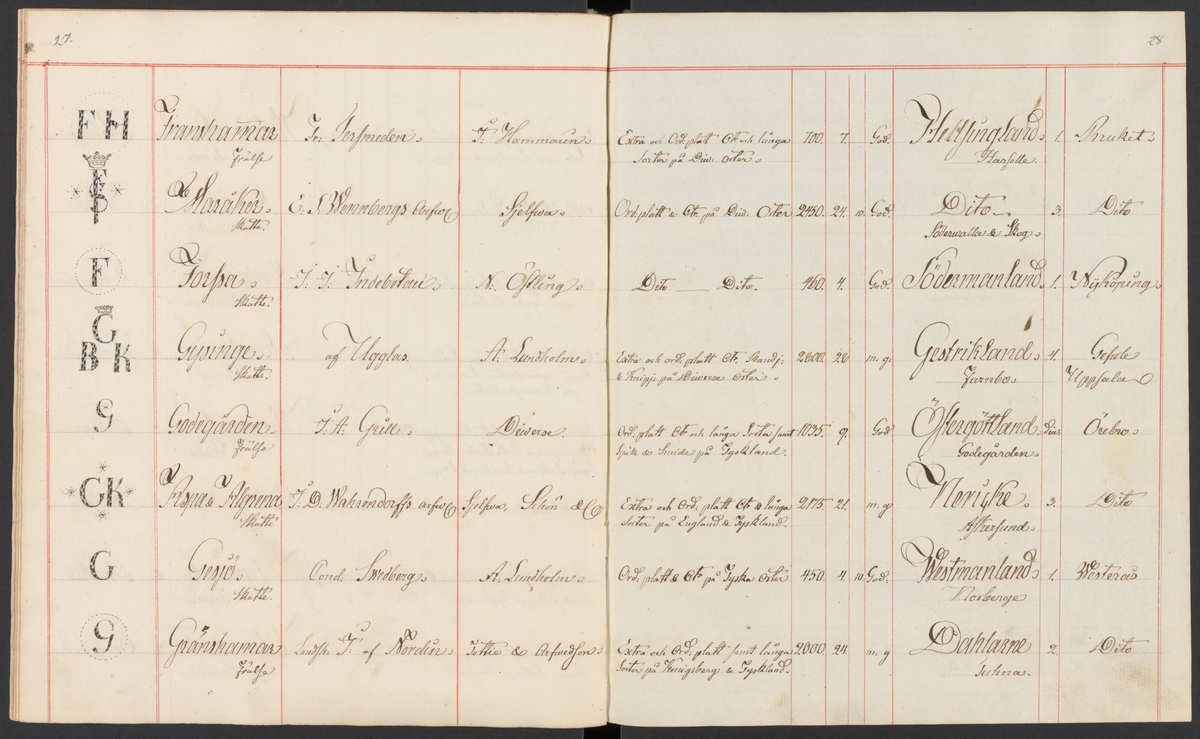 27.
28
F H Franshamar Fr. Tersmeden F: Hammarin Extra och Ord. platt Ct och långa 700. 7. God. Helsingland 1. Bruket
Frälse Sorter på Div: Orter Harselle
F Maråker E. S. Wennbergs Arfw Sjelfwa Ord. platt & Ct. på Div. Orter 2450. 24. 10. God. Dito 3. Dito
Skatte. Söderwalla & Skog
F Forssa J. J. Indebetou N. Östling Dito Dito. 460. 4. God. Södermanland 1. Nyköping
Skatte.
G
B K Gysinge af Ugglas A. Lundholm Extra och ord. platt Ct. Band j: 2600. 26 m: g. Gestrikland 4. Gefvle
Skatte. & Knipp på Diverse Orter Jernbo Uppsala
G Godegården J. A. Grill Diverse. Ord. platt Ct och långa Sorter samt 1035. 9. God Östergöttland div. Örebro
Frälse Spik & Smide på Tyskland. Godegården
GK Aspa & Algrena J. D. Wahrendorffs Arfw Sjelfwa, Schön & C Extra och Ord. platt Ct & långa 2175. 21. m: g Nericke 3. Dito
Skatte Sorter på England & Tyskland. Askersund
G Gesjö Cond. Swedberg A. Lundholm Ord. platt & Ct. på Tyska Orter 450. 4 10 God. Westmanland 1. Westerås
Skatte. Norberge
G Gränshamar Landsh: J. af Nordin Tottie & Arfwedson Extra och Ord. platt samt långa 2000. 24 m: g Dahlarne 2. Dito
Frälse Sorter på Königsberg & Tyskland. Tuhna